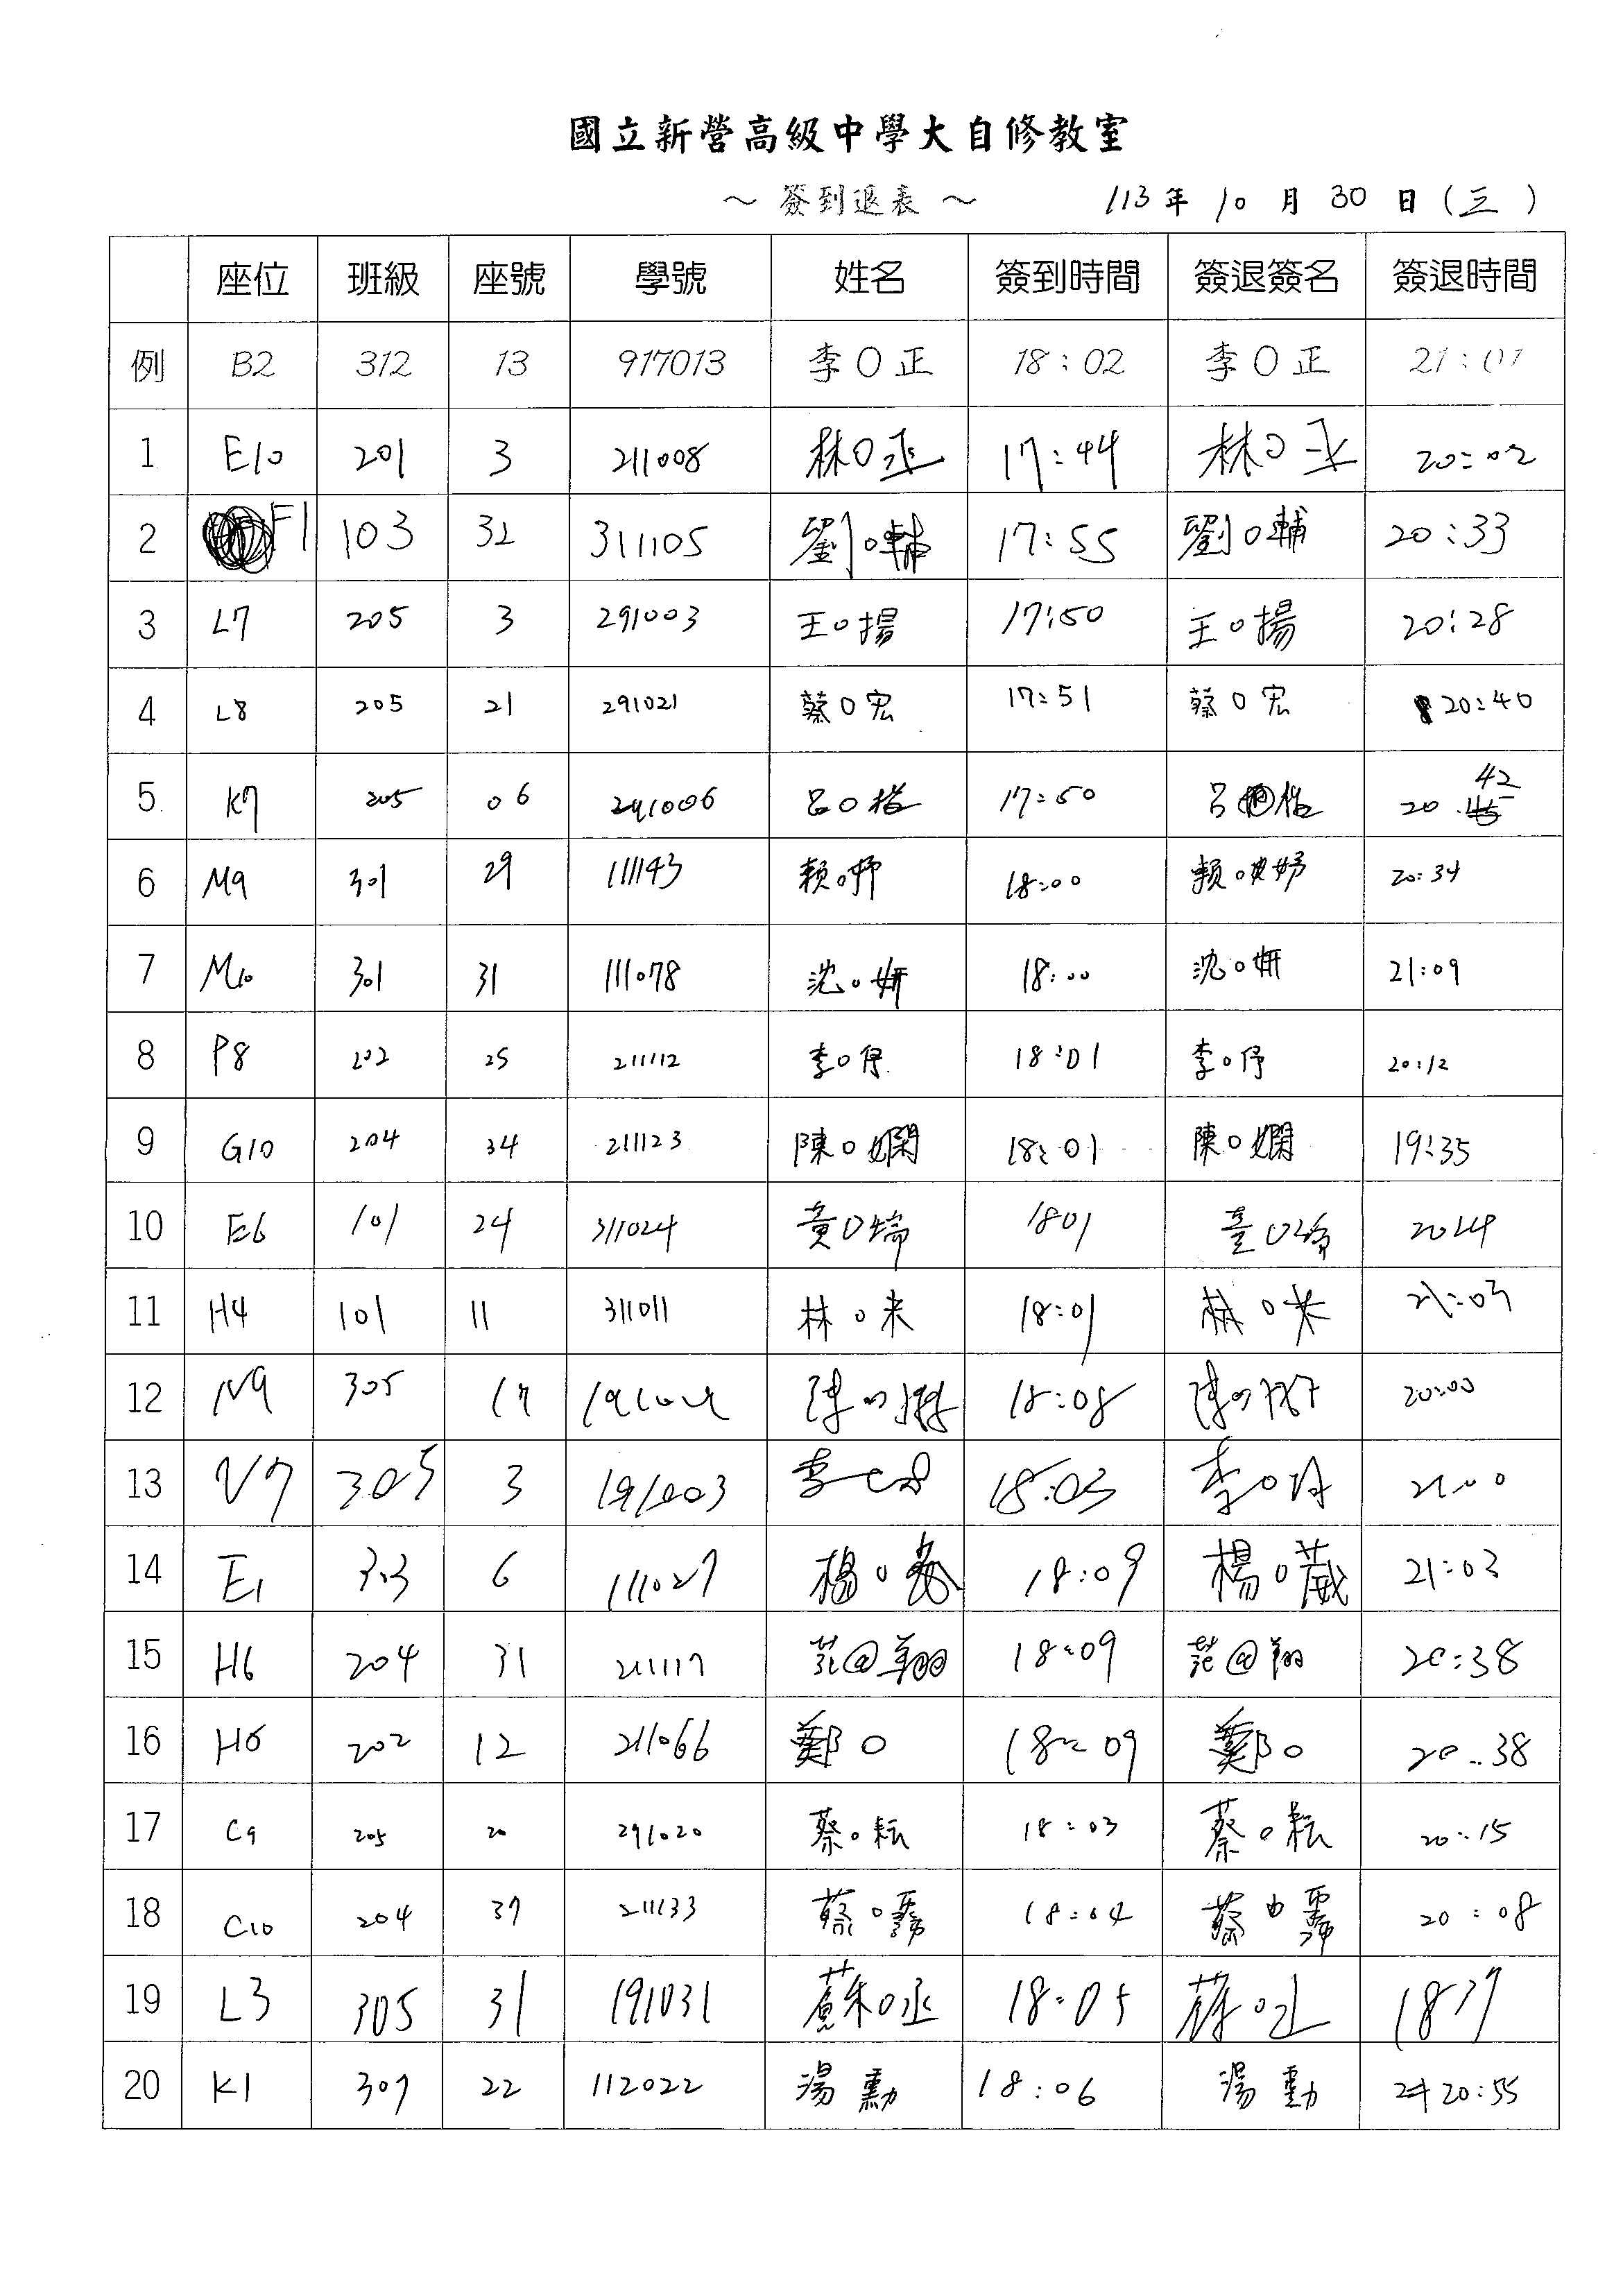 國立新營高級中學大自修教室
～ 簽到退表 ～ 113年 10 月 30 日 (三)
座位 班級 座號 學號 姓名 簽到時間 簽退簽名 簽退時間
例 B2 312 13 917013 李O正 18:02 李O正 21:01
1 E10 201 3 211008 林O丞 17:44 林O丞 20:02
2 F1 103 32 311105 劉O輔 17:55 劉O輔 20:33
3 L7 205 3 291003 王O揚 17:50 王O揚 20:28
4 L8 205 21 291021 蔡O宏 17:51 蔡O宏 20:40
5 K7 205 06 291006 呂O 17:50 呂 20:42
6 M9 301 29 111143 賴O妤 18:00 賴O妤 20:34
7 M10 301 31 111078 沈O妍 18:00 沈O妍 21:09
8 P8 202 25 211112 李O伃 18:01 李O伃 20:12
9 G10 204 34 211123 陳O嫻 18:01 陳O嫻 19:35
10 E6 101 24 311024 黃O 1801 黃O 2024
11 H4 101 11 311011 林O米 18:01 林O米 21:03
12 N9 305 17 陳O 18:08 陳O 20:00
13 N7 305 3 191003 李O 18:03 李O 21:00
14 E1 303 6 111027 楊O 18:09 楊O葳 21:03
15 H6 204 31 211117 范@翔 18:09 范@翔 20:38
16 H6 202 12 211066 鄭O 18:09 鄭O 20:38
17 C9 205 20 291020 蔡O耘 18:03 蔡O耘 20:15
18 C10 204 37 211133 蔡O霈 18:04 蔡O霈 20:08
19 L3 305 31 191031 蘇O丞 18:05 蘇O丞 1837
20 K1 307 22 112022 湯勳 18:06 湯勳 20:55